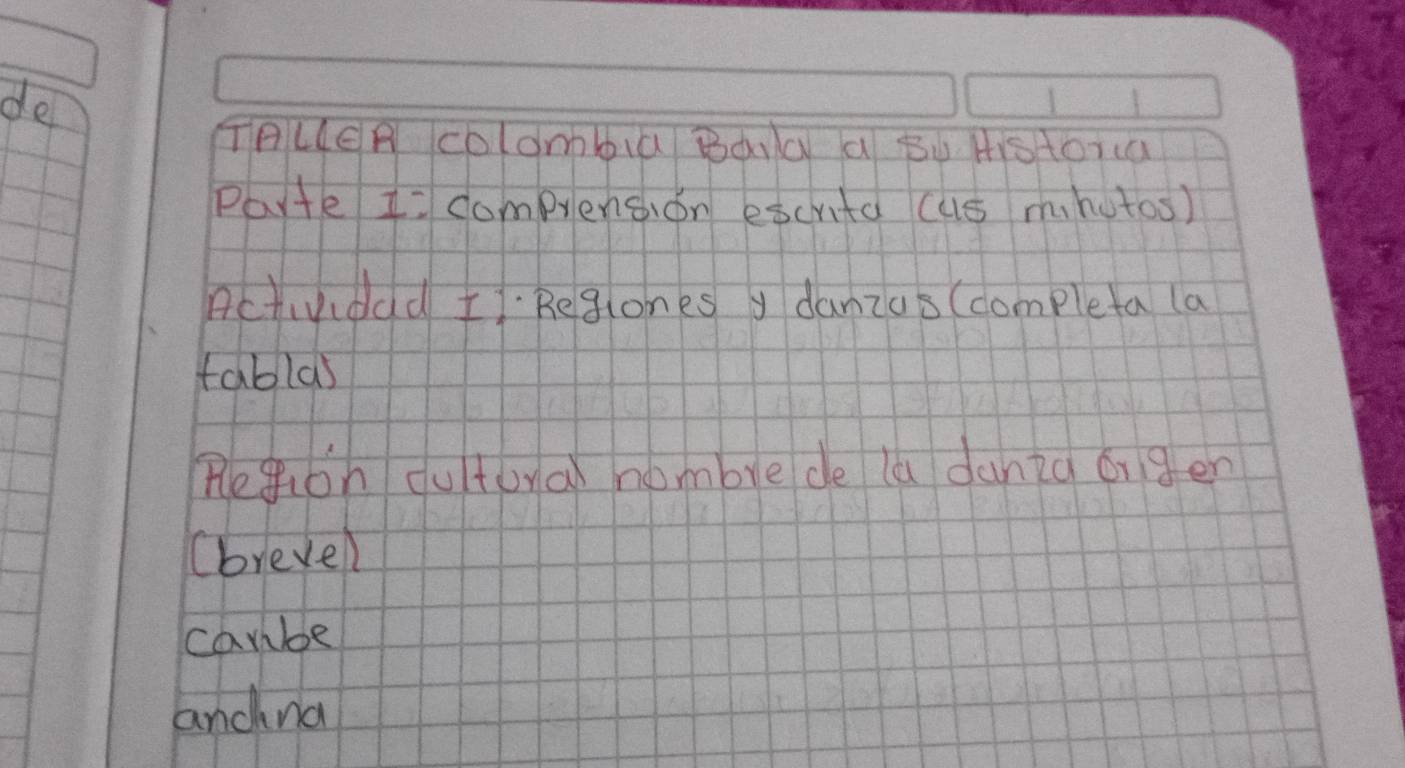 de
TALLER colombia Baila a su Historia
Parte I: comprensión escrita (45 minutos)
Actividad I: Regiones y danzas (completa la
tabla)
Región cultural nombre de la danza origen
(breve)
caribe
andina